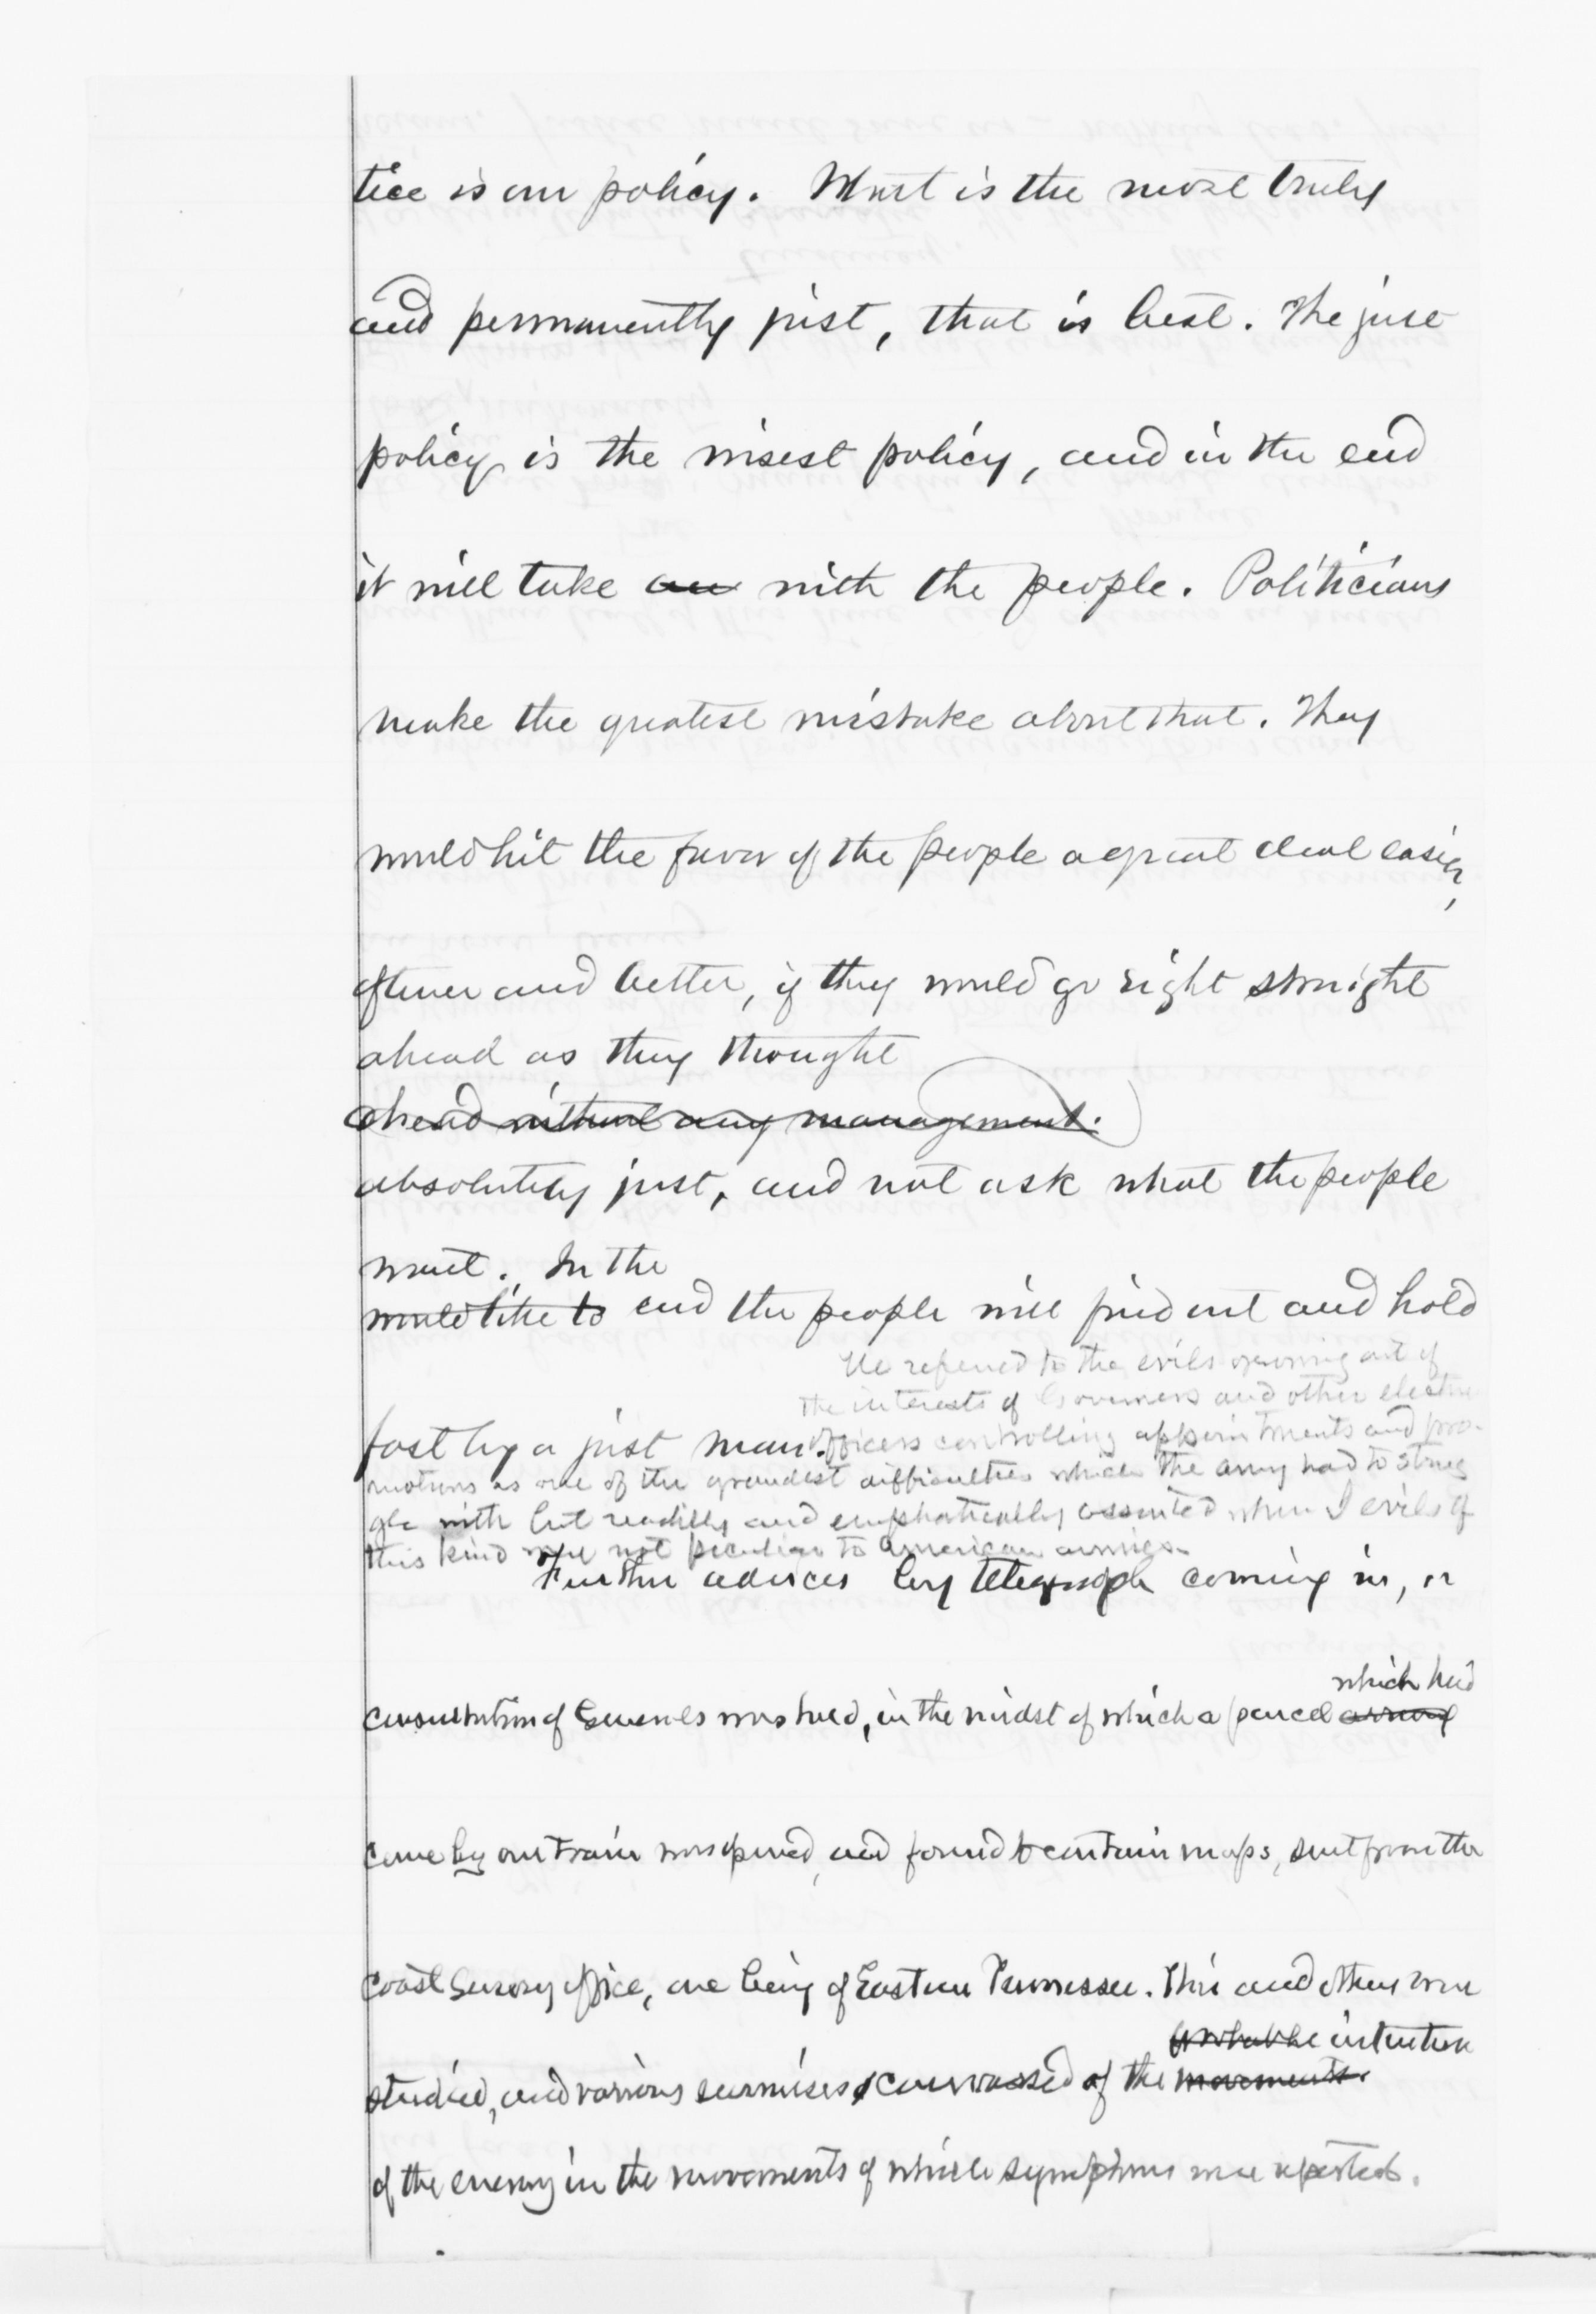 tice is our policy. What is the most truly
and permanently just, that is best. The just
policy is the wisest policy, and in the end
it will take with the people. Politicians
make the greatest mistake about that. They
would hit the favor of the people a great deal easier,
oftener and better, if they would go right straight
ahead as they thought
ahead without any management.
absolutely just, and not ask what the people
want. In the
would like to end the people will find out and hold
He referred to the evils growing out of
the interests of Governors and other elective
fast by a just man. officers controlling appointments and pro-
motions as one of the grandest difficulties which the army had to strug
gle with but readily and emphatically assented when I evils of
this kind were not peculiar to American armies.
Further advices by telegraph coming in, a
which had
consultation of Generals was held, in the midst of which a parcel
come by our train was opened, and found to contain maps, sent from the
Coast Survey office, one being of Eastern Tennessee. This and others were
intention
studied, and various surmises canvassed of the movements.
of the enemy in the movements of which symptoms were reported.